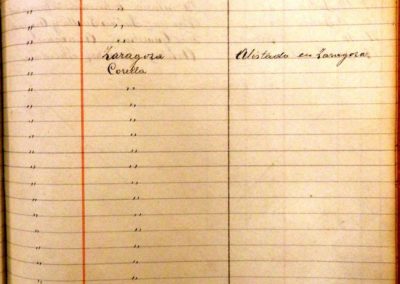 " "
" "
" "
" Zaragoza Alistado en Zaragoza
" Corella
" "
" "
" "
" "
" "
" "
" "
" "
" "
" "
" "
" "